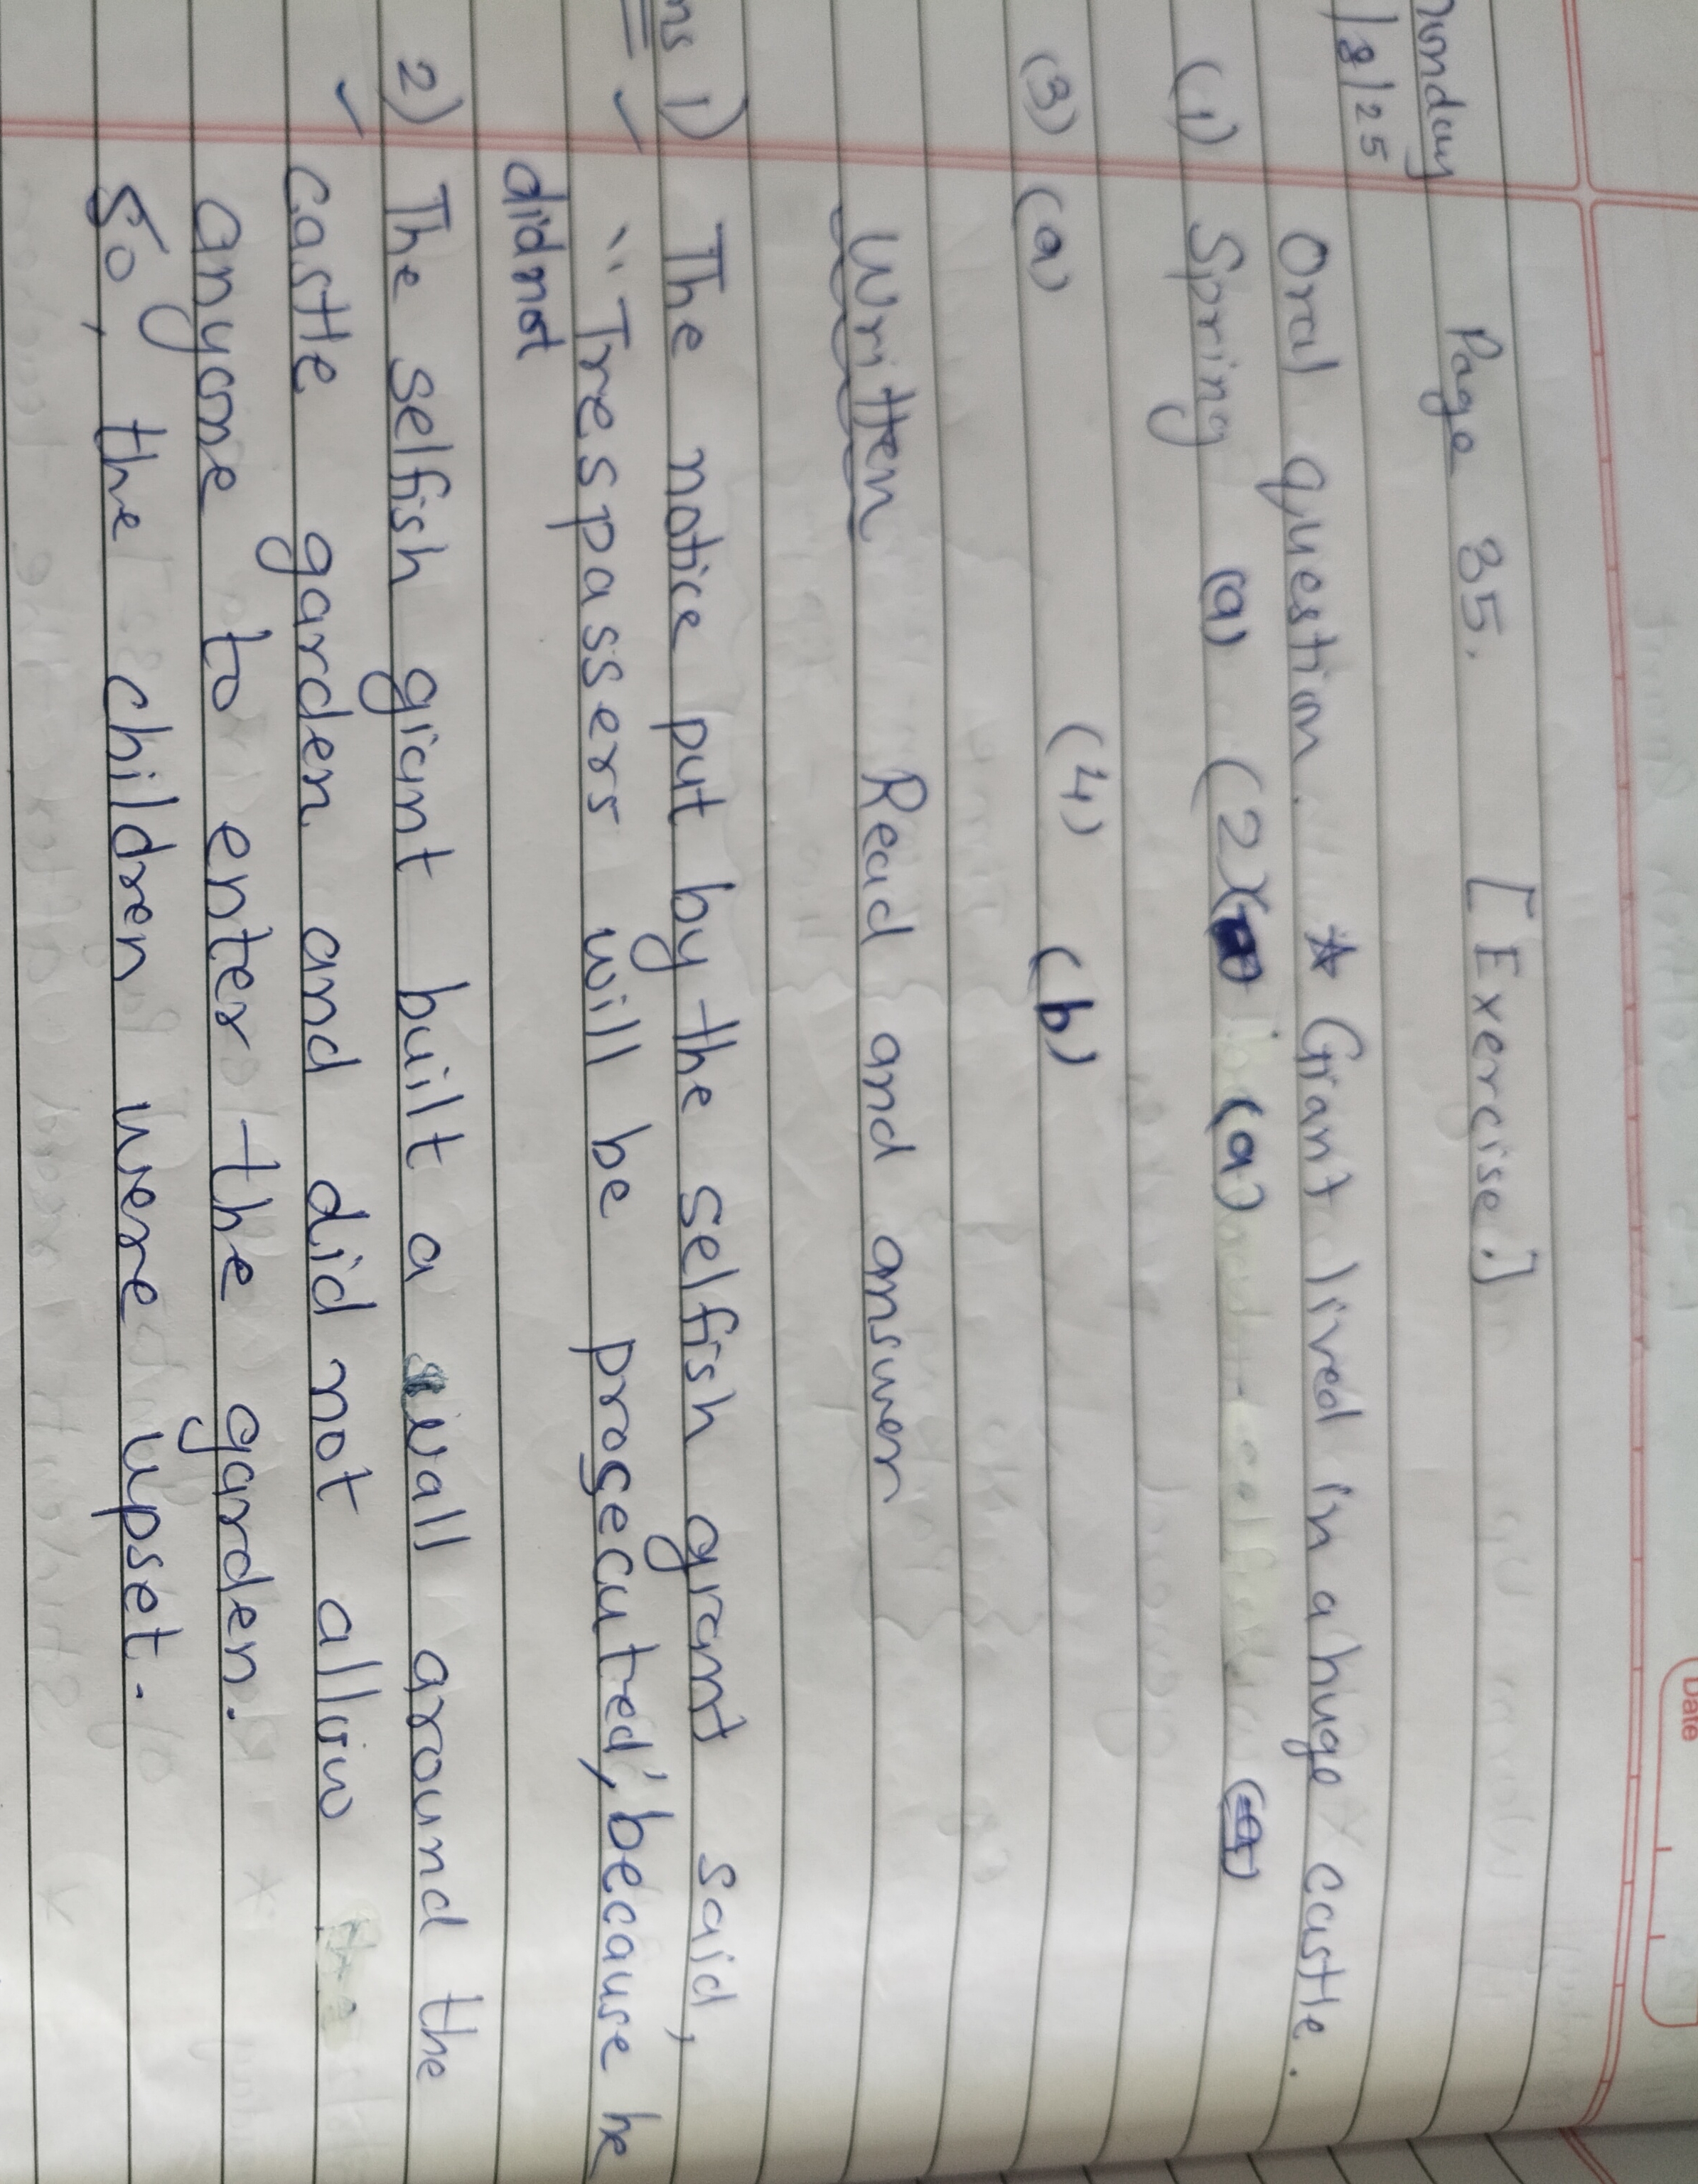 Monday Page 35. [Exercise.]
/8/25
Oral question. * Giant lived in a huge castle.
(1) Spring (a) (2) (a)
(3) (a) (4) (b)
Written Read and answer
ns 1) The notice put by the selfish giant said,
"Trespassers will be prosecuted', because he
didnot
2) The selfish giant built a wall around the
castle garden and did not allow
anyone to enter the garden.
So, the children were upset.
Date